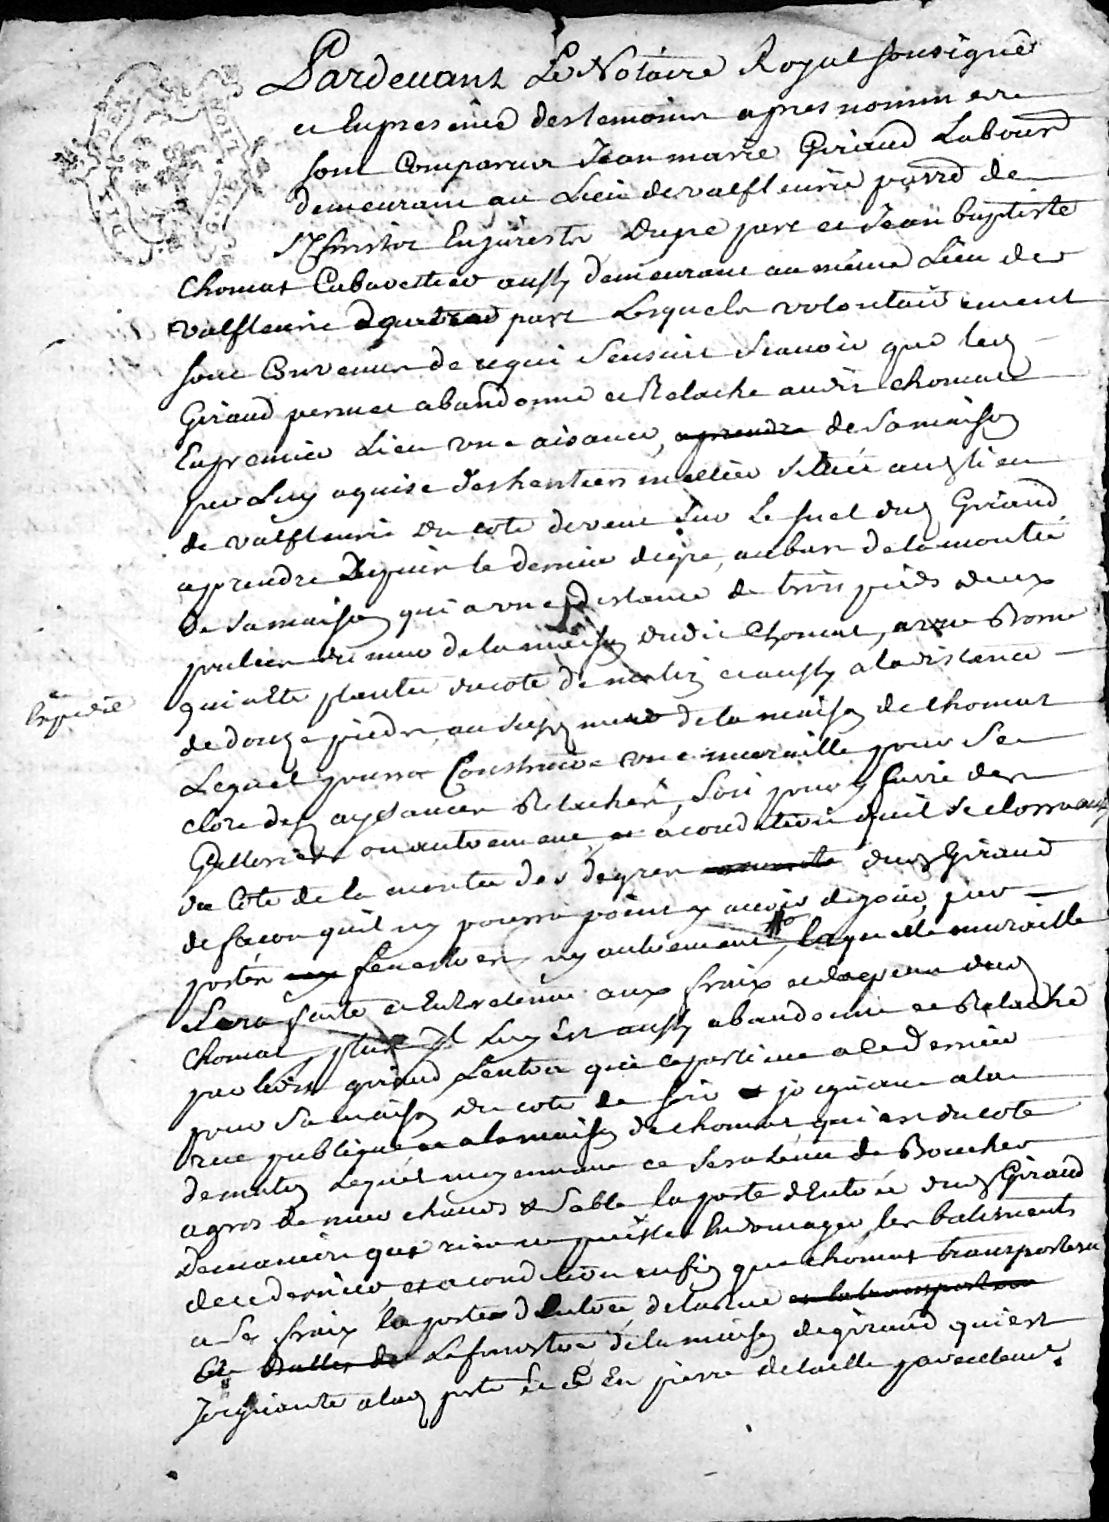 Pardevant Le Notaire Royal soussigné
et En presence des temoins apres nommes
sont Comparus Jean marie Giraud Labour
demeurant au Lieu de valfleurie parrd de
St Christot En jarest d'une part et Jean baptiste
chomat Cabarettier aussy demeurant au même Lieu de
valfleurie d'autre part Lesquels volontairement
sont Convenus de ce qui sensuit scavoir que led
Giraud permet abandonne et Relache audit chomat
En premier Lieu une aisance, a prendre de sa maison
par Luy aquise des heritiers situee aud lieu
de valfleurie du coté de vent sur Le suel dud Giraud
a prendre Depuis le dernier degré, au bas de la montée
de sa maison qui a une distance de trois pieds deux
pouces du mur de la maison dudit Chomat, a une Borne
qui a été plantée du coté de matin et aussy a la distance
de douze pieds, au susd mur de la maison de chomat
Expedié
Lequel pourra Construire une muraille pour se
clore desd aysances Relachées, soit pour y faire des
Galleries ou autrement et a condition qu'il se clorra
du Coté de la montée des degres dud Giraud
de facon quil ny pourra point y avoir de jour, par
portes fenestres ny autrement, laquelle muraille
sera faite et Entretenue aux fraix dud
Chomat, plus Il Luy Est aussy abandonné et Relaché
par ledit giraud, L'entrée qui appartient a ce dernier
pour sa maison du coté de soir joignant a la
rue publique et a la maison de chomat qui est du coté
de matin Lequel moyennant ce sera tenu de Boucher
a gros de mur chaux & sable la porte d'Entrée dud Giraud
de maniere que rien ne puisse Endomager les batiments
de ce dernier, et a condition enfin que chomat transportera
a ses fraix la porte d'Entrée de la rue et la transportera
La fenestre de la maison de giraud qui est
joignante a lad porte En pierre de taille